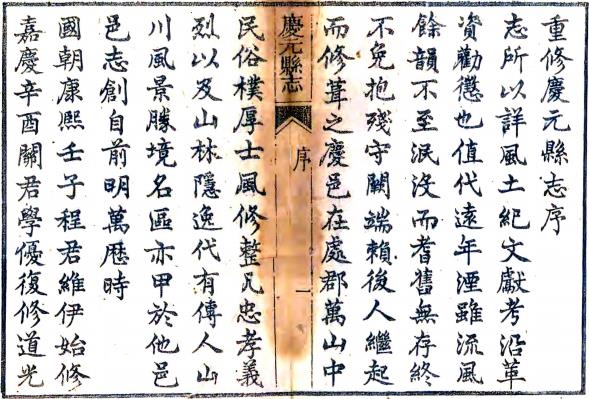 重修慶元縣志序
志所以詳風土紀文獻考沿革
資勸懲也值代遠年湮雖流風
餘韻不至泯沒而耆舊無存終
不免抱殘守闕端賴後人繼起
而修葺之慶邑在處郡萬山中
慶元縣志
序
一
民俗樸厚士風修整凡忠孝義
烈以及山林隱逸代有傳人山
川風景勝境名區亦甲於他邑
邑志創自前明萬歷時
國朝康熙壬子程君維伊始修
嘉慶辛酉關君學優復修道光